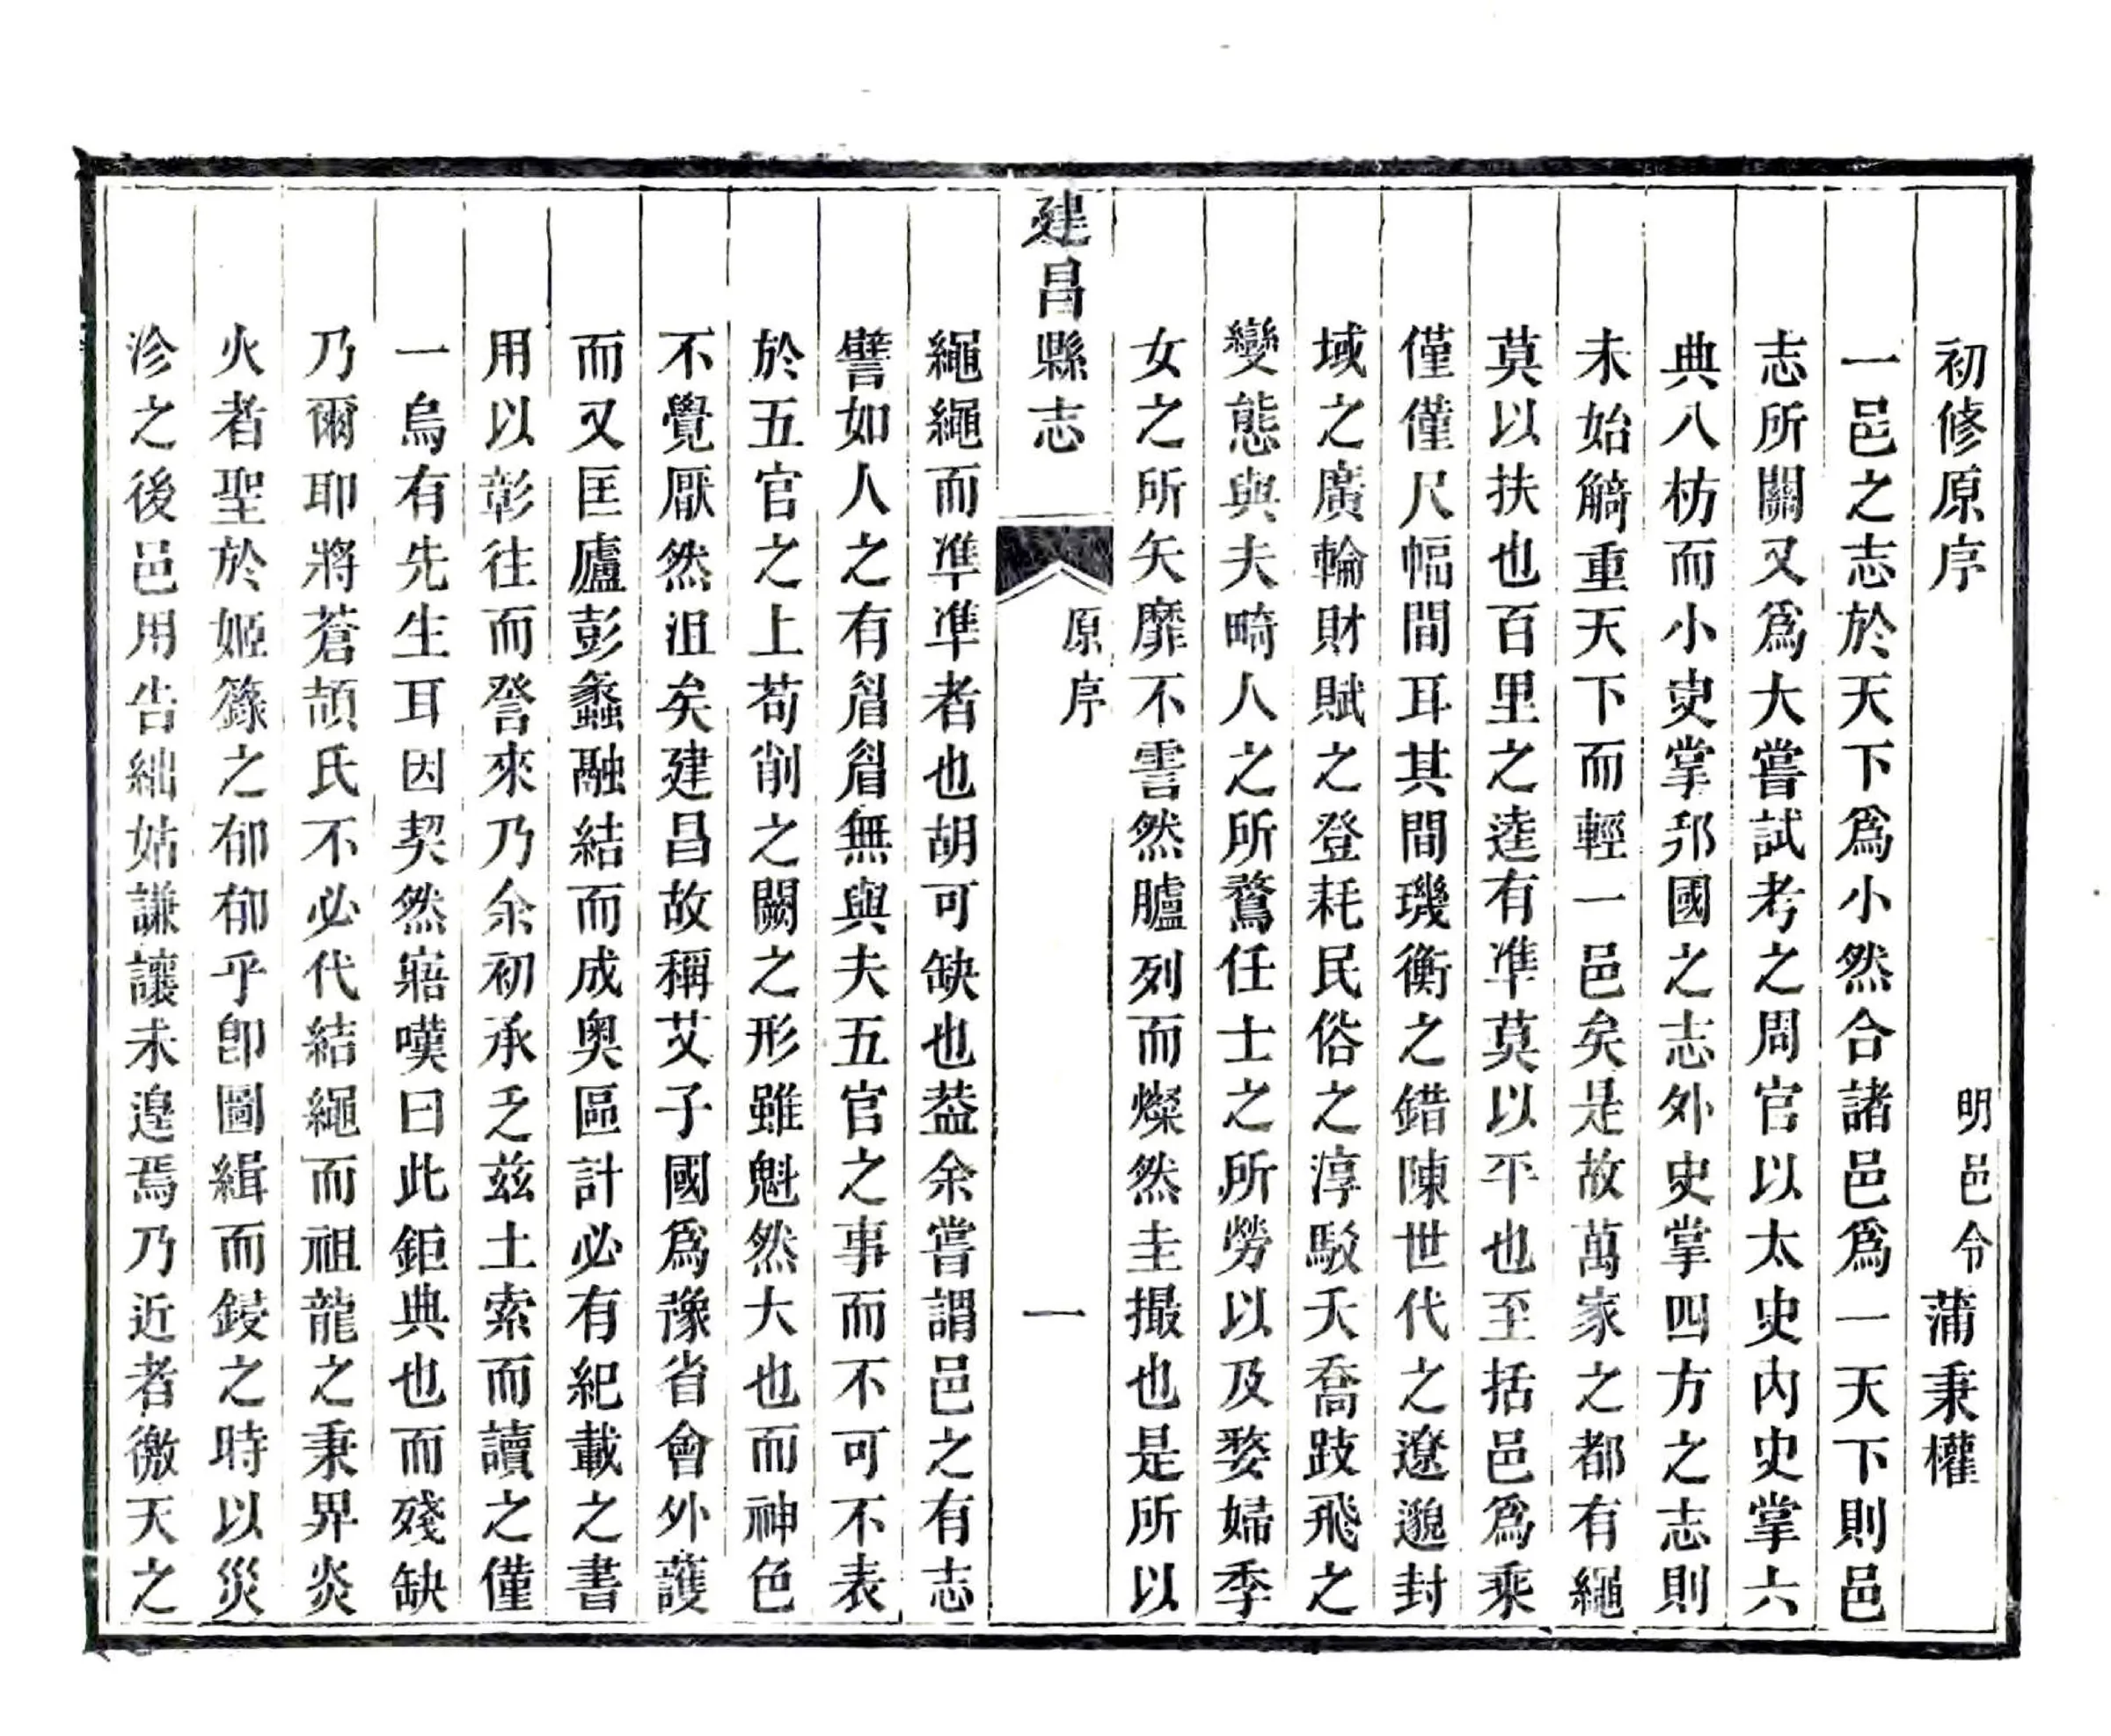 初修原序 明邑令蒲秉權
一邑之志於天下爲小然合諸邑爲一天下則邑
志所關又爲大嘗試考之周官以太史内史掌六
典八枋而小史掌邦國之志外史掌四方之志則
未始觭重天下而輕一邑矣是故萬家之都有繩
莫以扶也百里之逵有準莫以平也至括邑爲乘
僅僅尺幅間耳其間璣衡之錯陳世代之遼邈封
域之廣輪財賦之登耗民俗之淳駁夭喬跂飛之
變態與夫畸人之所鶩任士之所勞以及婺婦季
女之所矢靡不雲然臚列而燦然圭撮也是所以
建昌縣志 原序 一
繩繩而準準者也胡可缺也葢余嘗謂邑之有志
譬如人之有眉眉無與夫五官之事而不可不表
於五官之上苟削之闕之形雖魁然大也而神色
不覺厭然沮矣建昌故稱艾子國爲豫省會外護
而又匡廬彭蠡融結而成奥區計必有紀載之書
用以彰往而詧來乃余初承乏茲土索而讀之僅
一烏有先生耳因契然寤嘆曰此鉅典也而殘缺
乃爾耶將蒼頡氏不必代結繩而祖龍之秉畀炎
火者聖於姬籙之郁郁乎卽圖緝而鋟之時以災
沴之後邑用告絀姑謙讓未遑焉乃近者徼天之